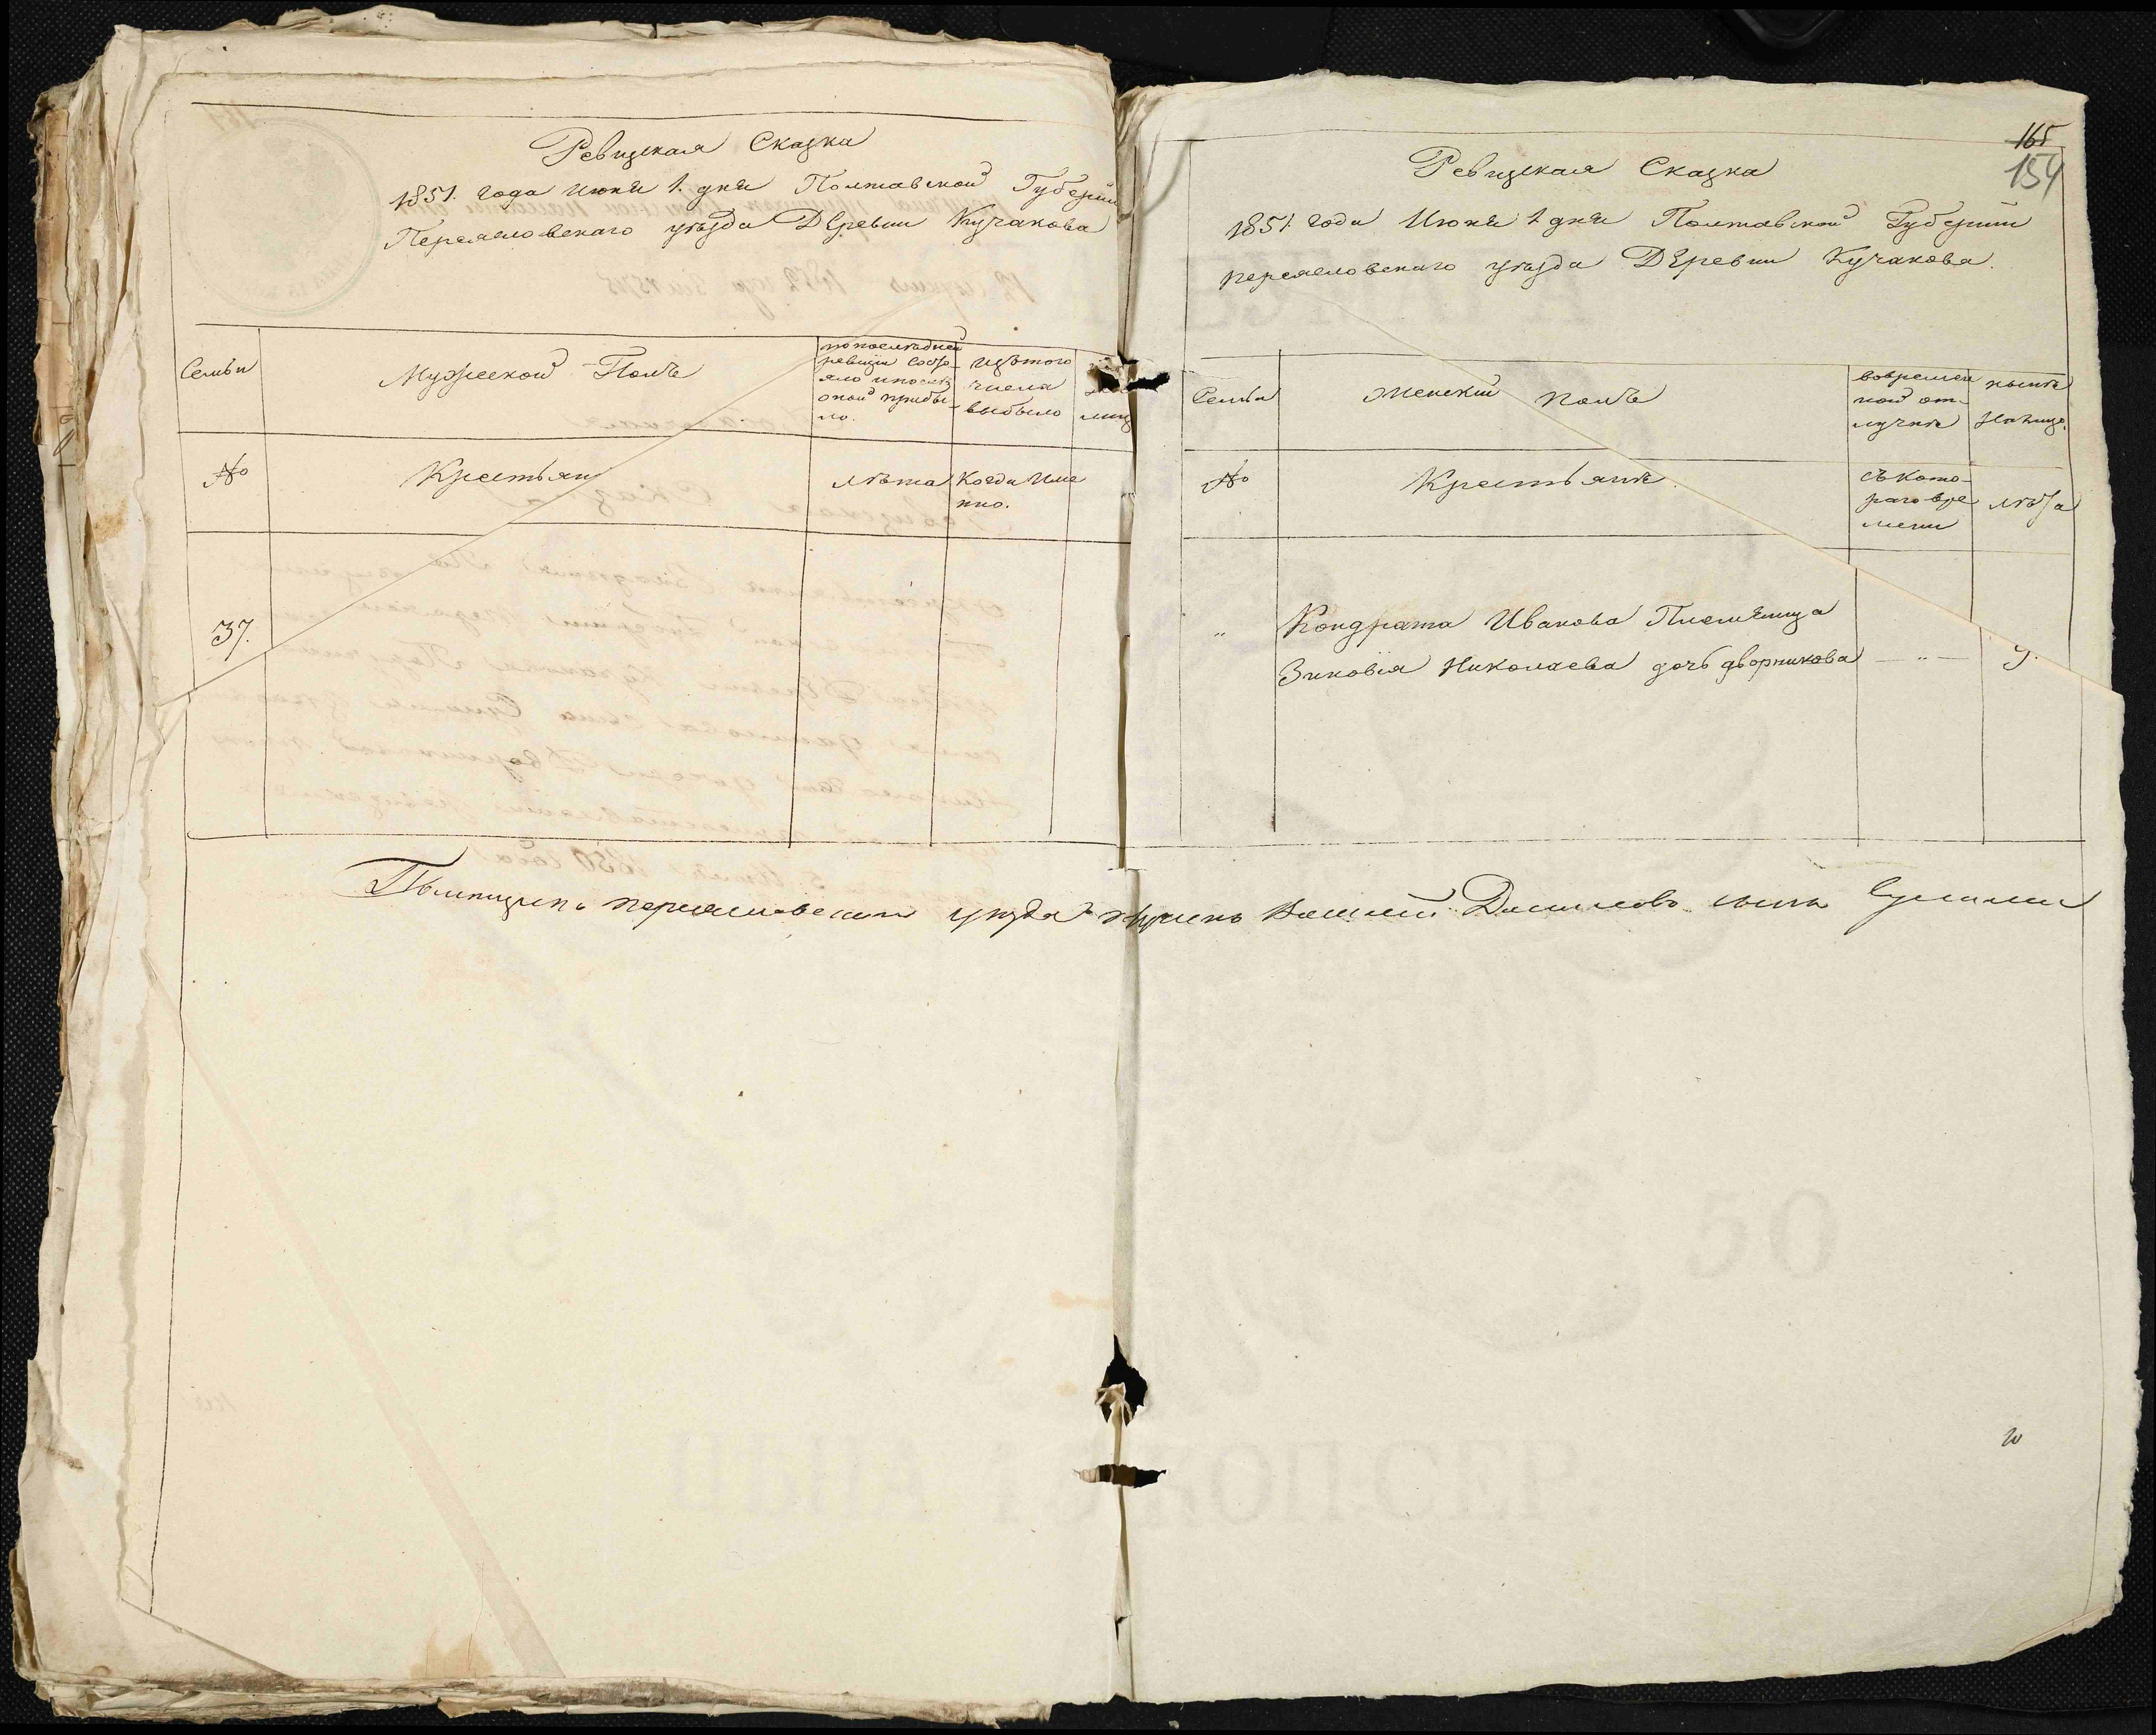 Ревизская Сказка
1851. года Июня 1. дня Полтавской Губернии
Переяловскаго уѣзда Деревни Кучакова
Семьи
Мужеской Полъ
попослѣдней
ревизіи состо-
яло ипослѣ
оной прибы-
ло.
Изътого
числа
выбыло
лиц
№
Крестьян
лѣта
Когда Име
нно.
37.
165
154
Ревизская Сказка
1851. года Июня 1 дня Полтавской Губерніи
переяловскаго уѣзда Деревни Кучакова.
Семьи
Женскій полъ
вовремен
ной от-
лучкѣ
нынѣ
Налице.
№
Крестьянѣ
съкото-
раго вре
мени
лѣта
" Кондрата Иванова Племеница
Зиновія Николаева дочь дворникова — " —
переяславскаго уезда Данилова сынъ